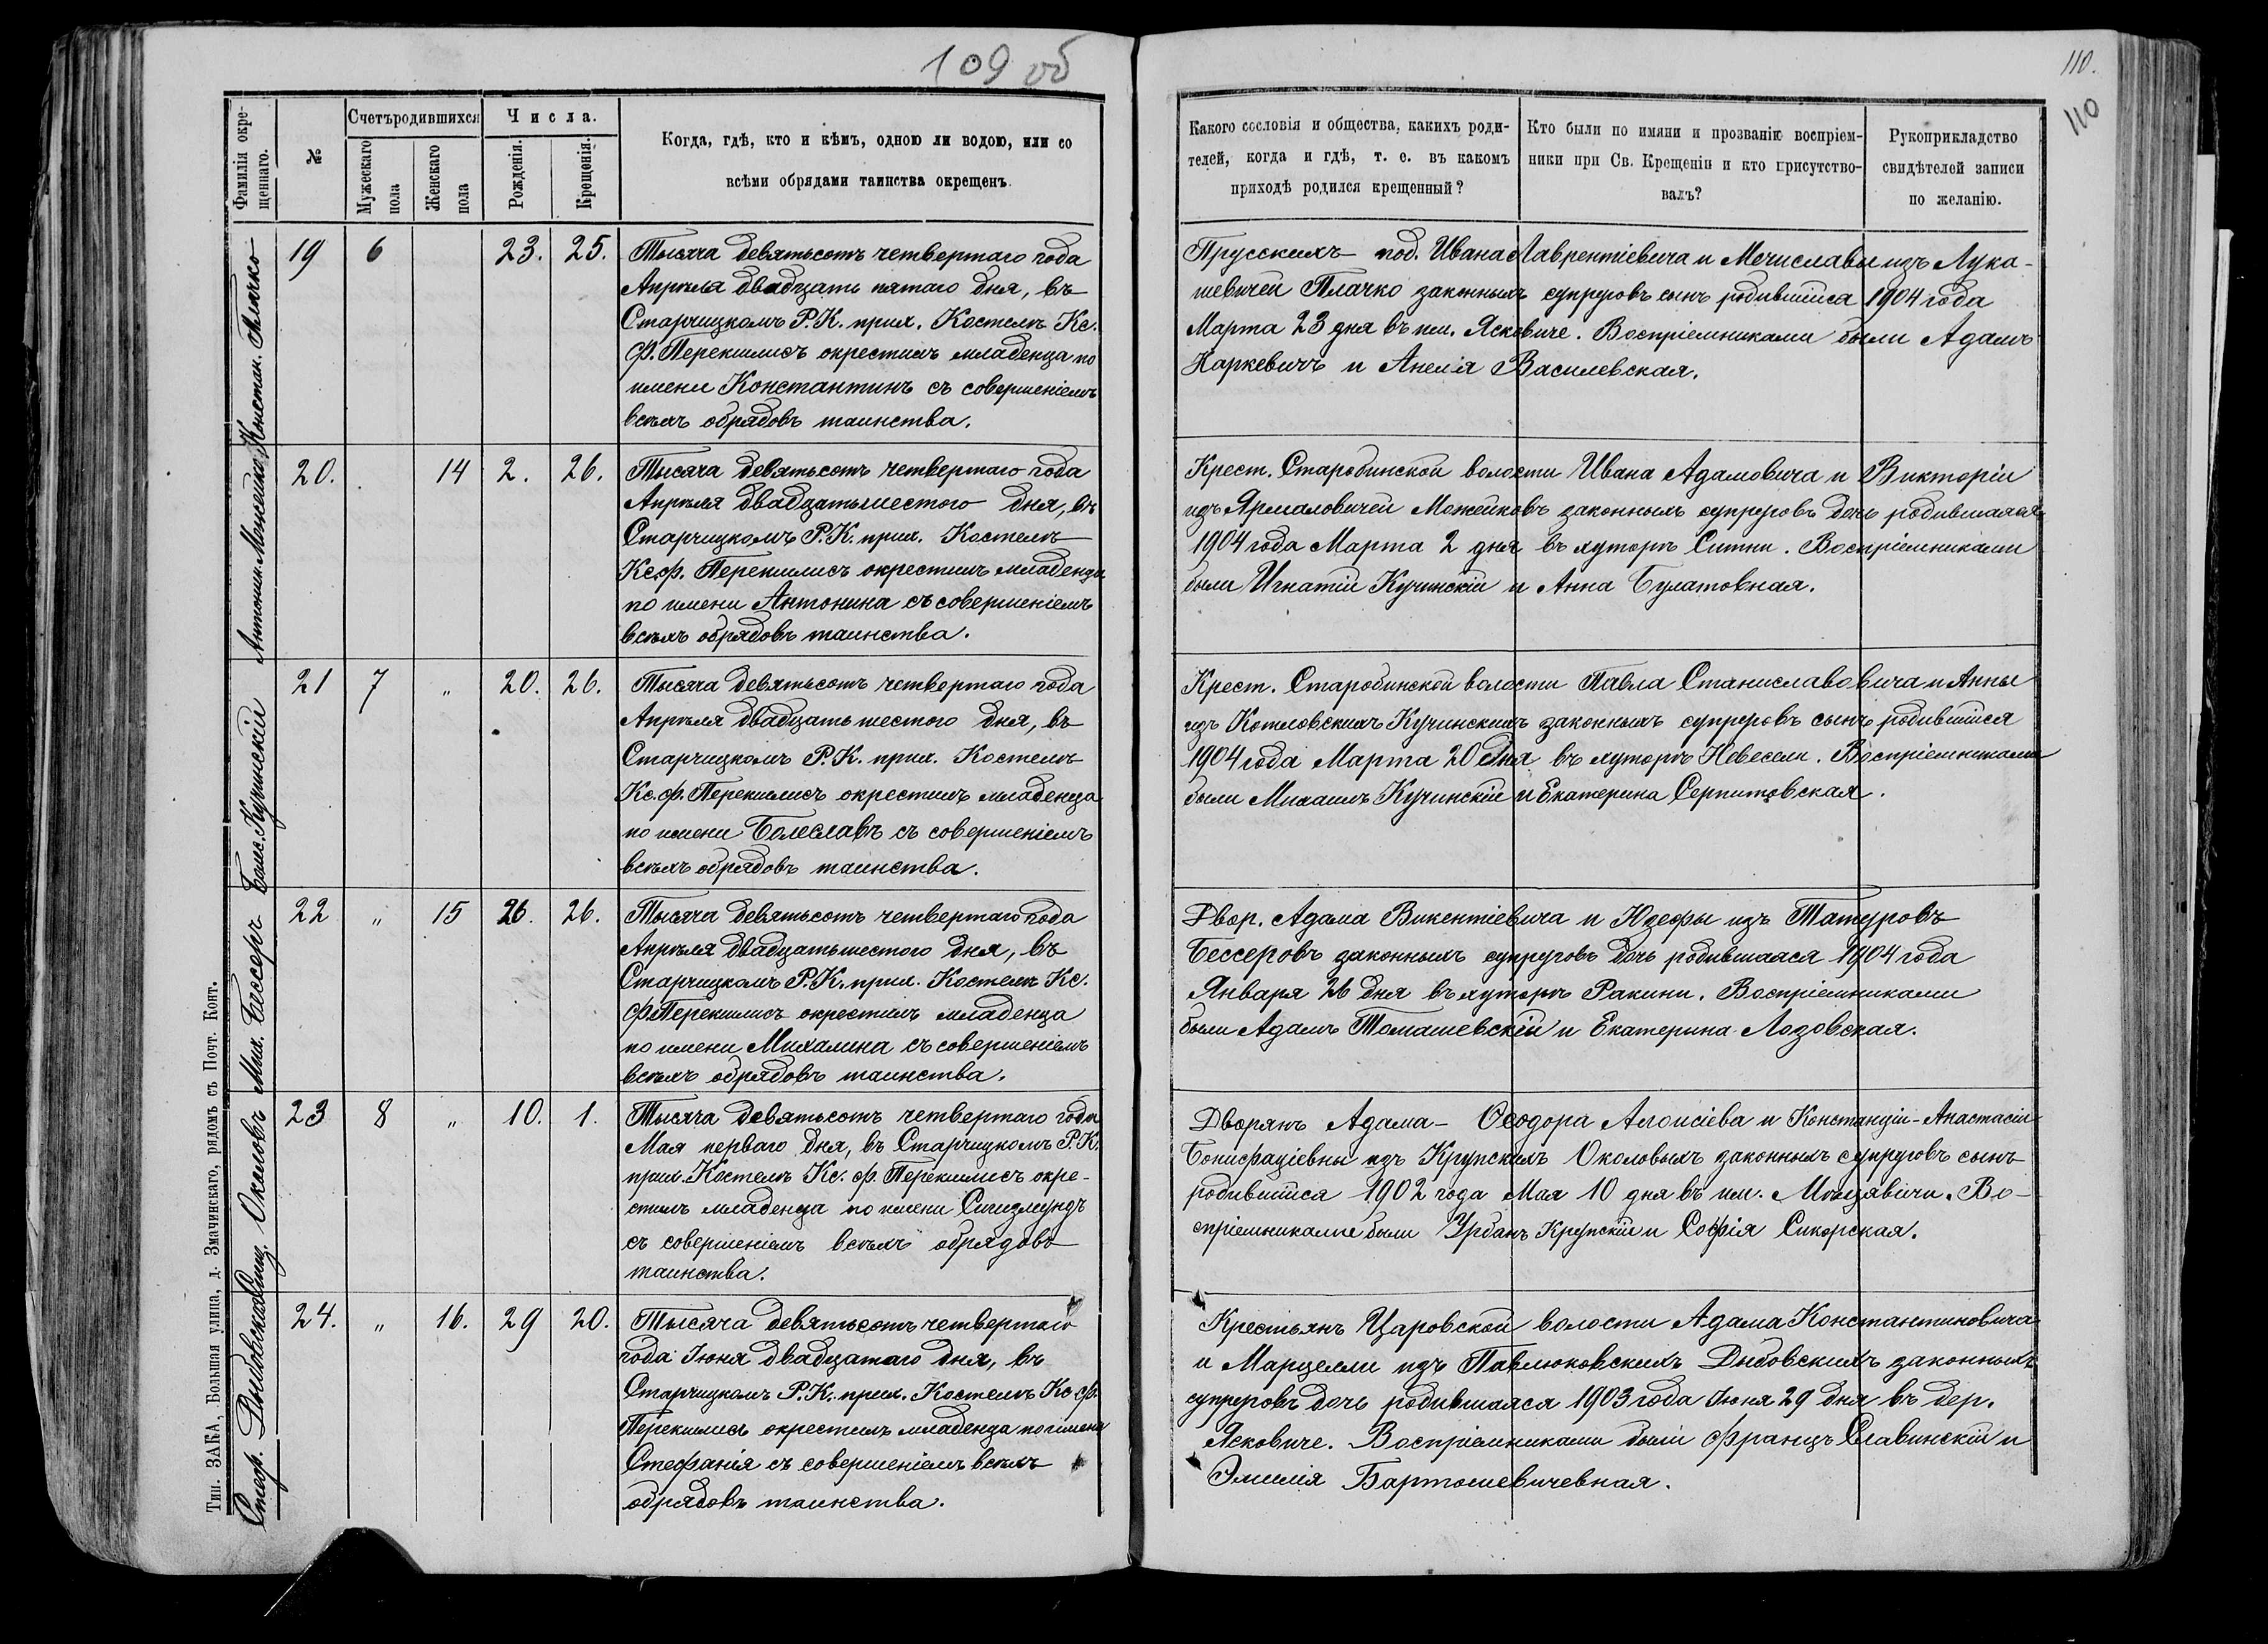 109 об
Фамилія окре-
щеннаго.
№
Счетъ родившихся
Мужескаго
пола
Женскаго
пола
Числа.
Рожденія.
Крещенія.
Когда, гдѣ, кто и кѣмъ, одною ли водою, или со
всѣми обрядами таинства окрещенъ.
Констан. Плачко
19 6 23. 25.
Тысяча девятьсотъ четвертаго года
Апрѣля двадцать пятаго дня, въ
Старчицкомъ Р.К. прих. Костелѣ Кс.
Ф. Перекшлисъ окрестилъ младенца по
имени Константинъ съ совершеніемъ
всѣхъ обрядовъ таинства.
Антонин. Можейко
20. 14 2. 26.
Тысяча девятьсотъ четвертаго года
Апрѣля двадцатьшестого дня, въ
Старчицкомъ Р.К. прих. Костелѣ
Кс. Ф. Перекшлисъ окрестилъ младенца
по имени Антонина съ совершеніемъ
всѣхъ обрядовъ таинства.
Болес. Кучинскій
21 7 „ 20. 26.
Тысяча девятьсотъ четвертаго года
Апрѣля двадцать шестого дня, въ
Старчицкомъ Р.К. прих. Костелѣ
Кс. Ф. Перекшлисъ окрестилъ младенца
по имени Болеславъ съ совершеніемъ
всѣхъ обрядовъ таинства.
Мих. Бессеръ
22 „ 15 26. 26.
Тысяча девятьсотъ четвертаго года
Апрѣля двадцатьшестого дня, въ
Старчицкомъ Р.К. прих. Костелѣ Кс.
Ф. Перекшлисъ окрестилъ младенца
по имени Михалина съ совершеніемъ
всѣхъ обрядовъ таинства.
Околовъ
23 8 „ 10. 1.
Тысяча девятьсотъ четвертаго года
Мая перваго дня, въ Старчицкомъ Р.К.
прих. Костелѣ Кс. Ф. Перекшлисъ окре-
стилъ младенца по имени Сигизмундъ
съ совершеніемъ всѣхъ обрядовъ
таинства.
Стеф. Дыбовская
24. „ 16. 29 20.
Тысяча девятьсотъ четвертаго
года Іюня двадцатаго дня, въ
Старчицкомъ Р.К. прих. Костелѣ Кс. Ф.
Перекшлисъ окрестилъ младенца по имени
Стефанія съ совершеніемъ всѣхъ
обрядовъ таинства.
Тип. ЗАКА, Большая улица, д. Змачинскаго, рядомъ съ Почт. Конт.
110.
110
Какого сословія и общества, какихъ роди-
телей, когда и гдѣ, т. е. въ какомъ
приходѣ родился крещенный?
Кто были по имяни и прозванію воспріем-
ники при Св. Крещеніи и кто присутство-
валъ?
Рукоприкладство
свидѣтелей записи
по желанію.
Прусскихъ под. Ивана Лаврентіевича и Мечиславы изъ Лука-
шевичей Плачко законныхъ супруговъ сынъ родившійся 1904 года
Марта 23 дня въ им. Ясковиче. Воспріемниками были Адамъ
Наркевичъ и Анелія Василевская.
Крест. Старобинской волости Ивана Адамовича и Викторіи
изъ Ярмаловичей Можейковъ законныхъ супруговъ дочь родившаяся
1904 года Марта 2 дня въ хуторѣ Ситни. Воспріемниками
были Игнатій Кучинскій и Анна Булатовная.
Крест. Старобинской волости Павла Станиславовича и Анны
изъ Котловскихъ Кучинскихъ законныхъ супруговъ сынъ родившійся
1904 года Марта 20 дня въ хуторѣ Невесели. Воспріемниками
были Михаилъ Кучинскій и Екатерина Серпитовская.
Двор. Адама Викентіевича и Юзефы изъ Татуровъ
Бессеровъ законныхъ супруговъ дочь родившаяся 1904 года
Января 26 дня въ хуторѣ Ракини. Воспріемниками
были Адамъ Томашевскій и Екатерина Лозовская.
Дворянъ Адама-Ѳеодора Алоисіева и Констанціи-Анастасіи
Бонифаціевны изъ Крупскихъ Околовыхъ законныхъ супруговъ сынъ
родившійся 1902 года Мая 10 дня въ им. Во-
спріемниками были Урбанъ Крупскій и Софія Сикорская.
Крестьянъ Царовской волости Адама Константиновича
и Марцелли изъ Павлюковскихъ Дыбовскихъ законныхъ
супруговъ дочь родившаяся 1903 года Іюня 29 дня въ дер.
Ясковиче. Воспріемниками были Францъ Славинскій и
Эмилія Бартошевичевная.